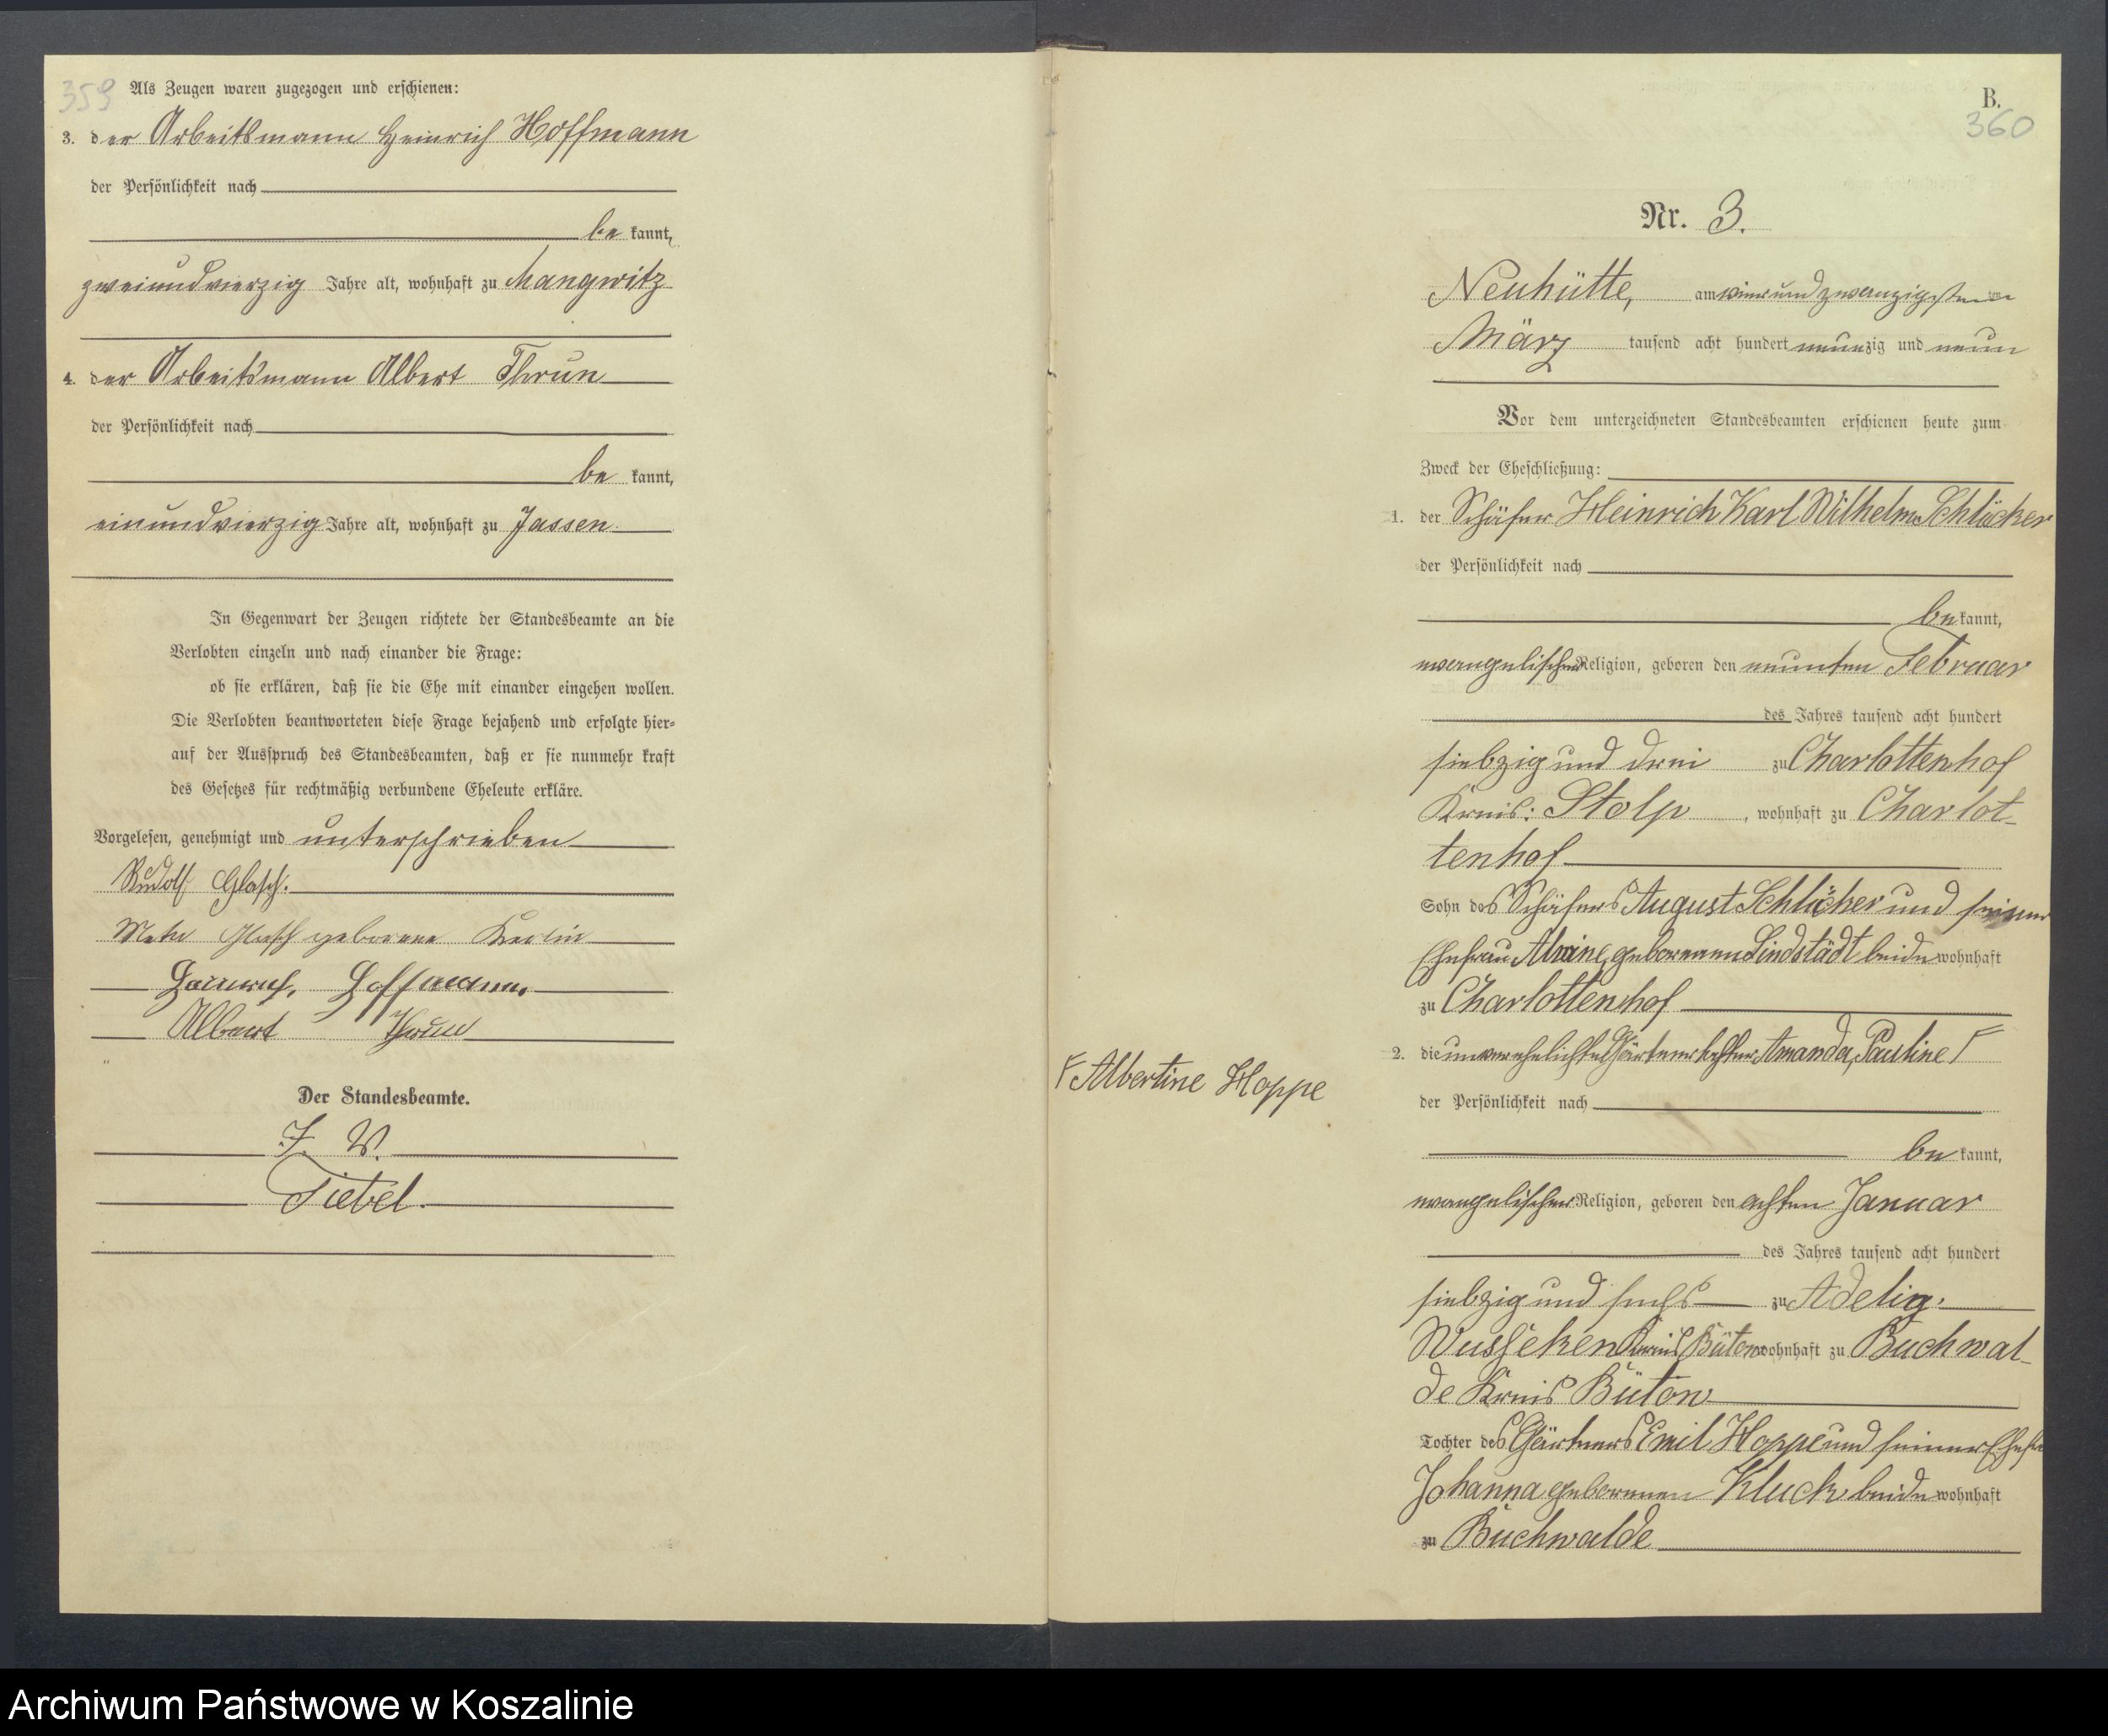 359
Als Zeugen waren zugezogen und erschienen:
3. der Arbeitsmann Heinrich Hoffmann
der Persönlichkeit nach
be kannt,
zweiundvierzig Jahre alt, wohnhaft zu Mangwitz
4. der Arbeitsmann Albert Thrun
der Persönlichkeit nach
be kannt,
einundvierzig Jahre alt, wohnhaft zu Jassen.
In Gegenwart der Zeugen richtete der Standesbeamte an die
Verlobten einzeln und nach einander die Frage:
ob sie erklären, daß sie die Ehe mit einander eingehen wollen.
Die Verlobten beantworteten diese Frage bejahend und erfolgte hier=
auf der Ausspruch des Standesbeamten, daß er sie nunmehr kraft
des Gesetzes für rechtmäßig verbundene Eheleute erkläre.
Vorgelesen, genehmigt und unterschrieben
Rudolf Glasch.
Glasch geborene
Heinrich Hoffmann.
Albert Thrun
Der Standesbeamte.
J. V.
Tiebel.
B.
360
Nr. 3.
Neuhütte, am vierundzwanzigsten
März tausend acht hundert neunzig und neun
Vor dem unterzeichneten Standesbeamten erschienen heute zum
Zweck der Eheschließung:
1. der Schäfer Heinrich Karl Wilhelm Schlücker
der Persönlichkeit nach
be kannt,
evangelischer Religion, geboren den neunten Februar
des Jahres tausend acht hundert
siebzig und drei zu Charlottenhof
Kreis: Stolp, wohnhaft zu Charlot-
tenhof
Sohn des Schäfers August Schlücker und seiner
Ehefrau Alwine, geborenen Lindstädt beide wohnhaft
zu Charlottenhof
2. die unverehelichte Gärtnertochter Amanda, Pauline F
F Albertine Hoppe
der Persönlichkeit nach
be kannt,
evangelischer Religion, geboren den achten Januar
des Jahres tausend acht hundert
siebzig und sechs zu Adelig.
Wusseken Kreis Bütow wohnhaft zu Buchwal-
de Kreis Bütow
Tochter des Gärtners Emil Hoppe und seiner Ehefr
Johanna geborenen Kluck beide wohnhaft
zu Buchwalde
Archiwum Państwowe w Koszalinie